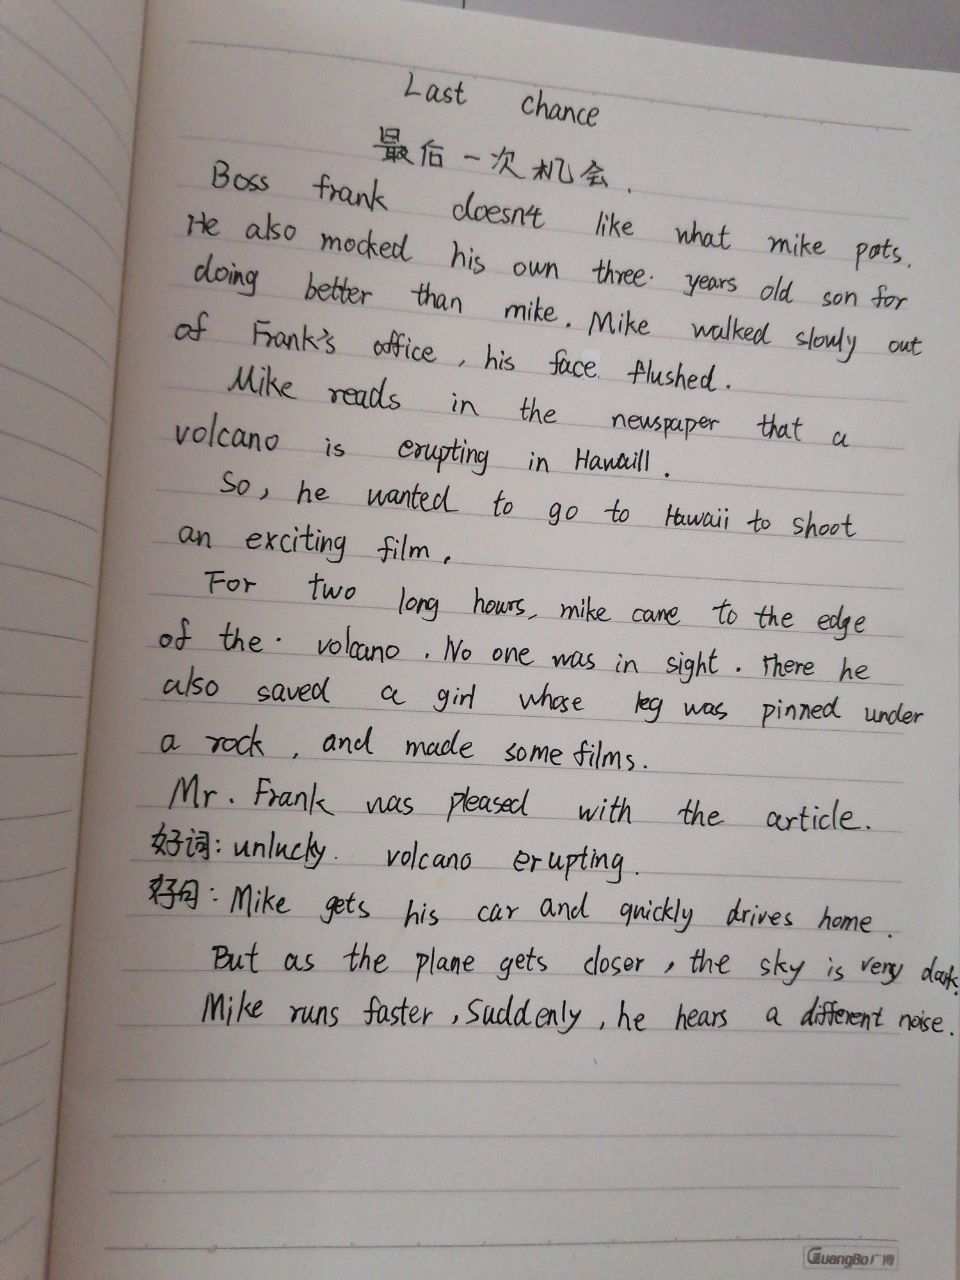 Last chance
最后一次机会.
Boss frank doesn't like what mike pots.
He also mocked his own three years old son for
doing better than mike. Mike walked slowly out
of Frank's office, his face flushed.
Mike reads in the newspaper that a
volcano is erupting in Hawaill.
So, he wanted to go to Hawaii to shoot
an exciting film.
For two long hours, mike came to the edge
of the. volcano. No one was in sight. There he
also saved a girl whose leg was pinned under
a rock, and made some films.
Mr. Frank was pleased with the article.
好词: unlucky. volcano erupting.
好句: Mike gets his car and quickly drives home.
But as the plane gets closer, the sky is very dark.
Mike runs faster, Suddenly, he hears a different noise.
GuangBo广博